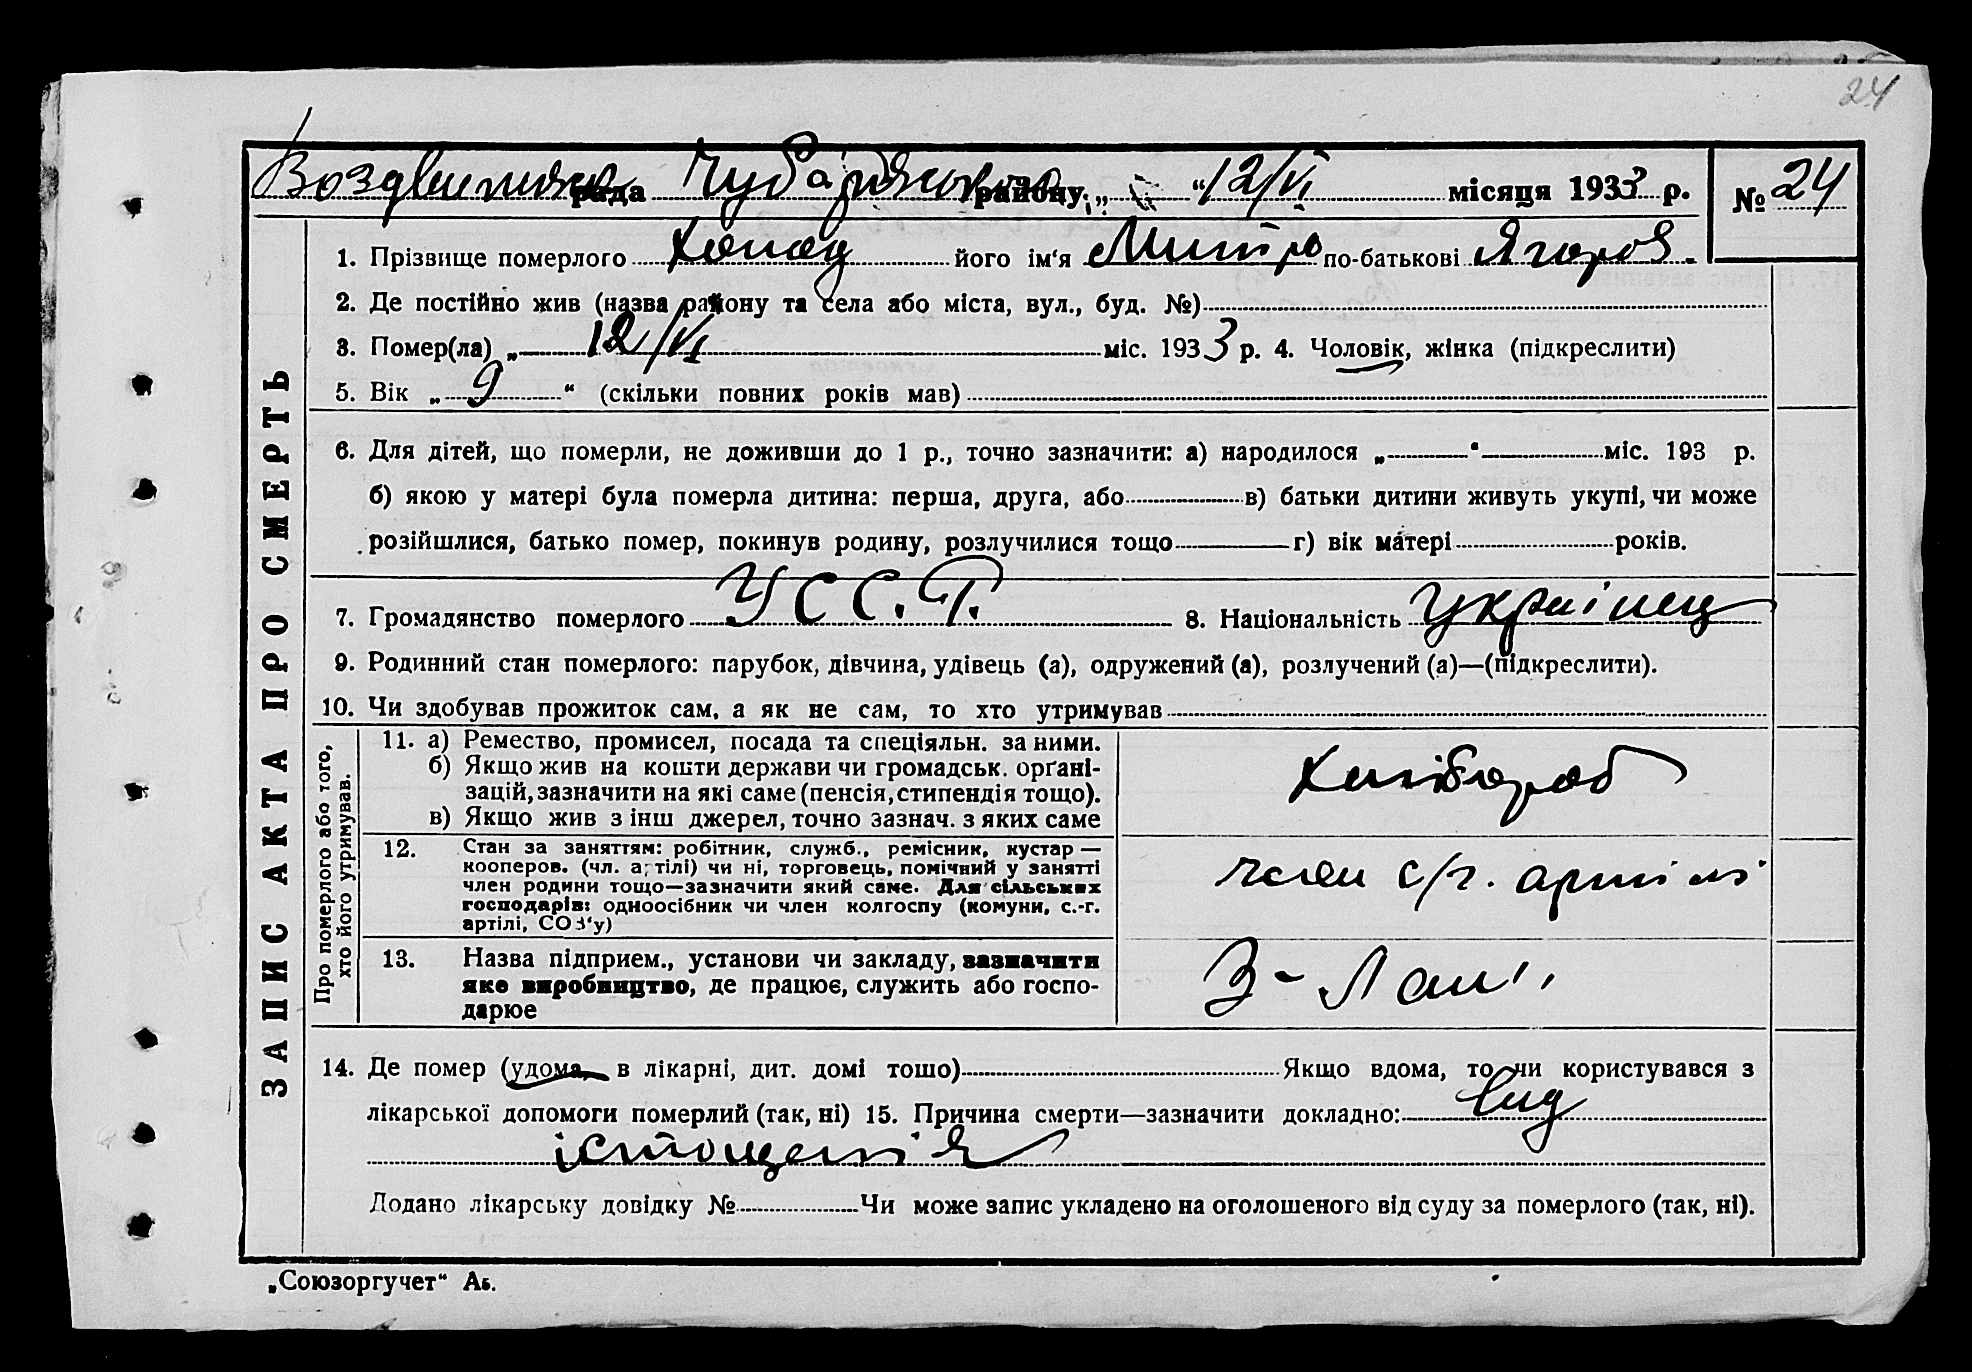 24
Воздвижська рада Чубарівського району „ “ 12/VI місяця 1933 р. № 24
ЗАПИС АКТА ПРО СМЕРТЬ
1. Прізвище померлого його ім‘я Митро по-батькові Ягоров.
2. Де постійно жив (назва району та села або міста, вул., буд. №)
3. Помер(ла) „ 12/VI міс. 1933 р. 4. Чоловік, жінка (підкреслити)
5. Вік „ 9 “ (скільки повних років мав)
6. Для дітей, що померли, не доживши до 1 р., точно зазначити: а) народилося „ “ міс. 193 р.
б) якою у матері була померла дитина: перша, друга, або в) батьки дитини живуть укупі, чи може
розійшлися, батько помер, покинув родину, розлучилися тощо г) вік матері років.
7. Громадянство померлого УСС.Р. 8. Національність Українец
9. Родинний стан померлого: парубок, дівчина, удівець (а), одружений (а), розлучений (а)—(підкреслити).
10. Чи здобував прожиток сам, а як не сам, то хто утримував
Про померлого або того,
хто його утримував.
11. а) Ремество, промисел, посада та спеціяльн. за ними.
б) Якщо жив на кошти держави чи громадськ. орґані-
зацій, зазначити на які саме (пенсія, стипендія тощо).
в) Якщо жив з інш джерел, точно зазнач. з яких саме
Хлібороб
12. Стан за заняттям: робітник, служб., ремісник, кустар —
кооперов. (чл. артілі) чи ні, торговець, помічний у занятті
член родини тощо—зазначити який саме. Для сільських
господарів: одноосібник чи член колгоспу (комуни, с.-г.
артілі, СОЗ‘у)
член с/г. артілі
13. Назва підприєм., установи чи закладу, зазначити
яке виробництво, де працює, служить або госпо-
дарює
З- Лан
14. Де помер (удома, в лікарні, дит. домі тошо) Якщо вдома, то чи користувався з
лікарської допомоги померлий (так, ні) 15. Причина смерти—зазначити докладно: Від
істощенія
Додано лікарську довідку № Чи може запис укладено на оголошеного від суду за померлого (так, ні).
„Союзоргучет“ Аь.